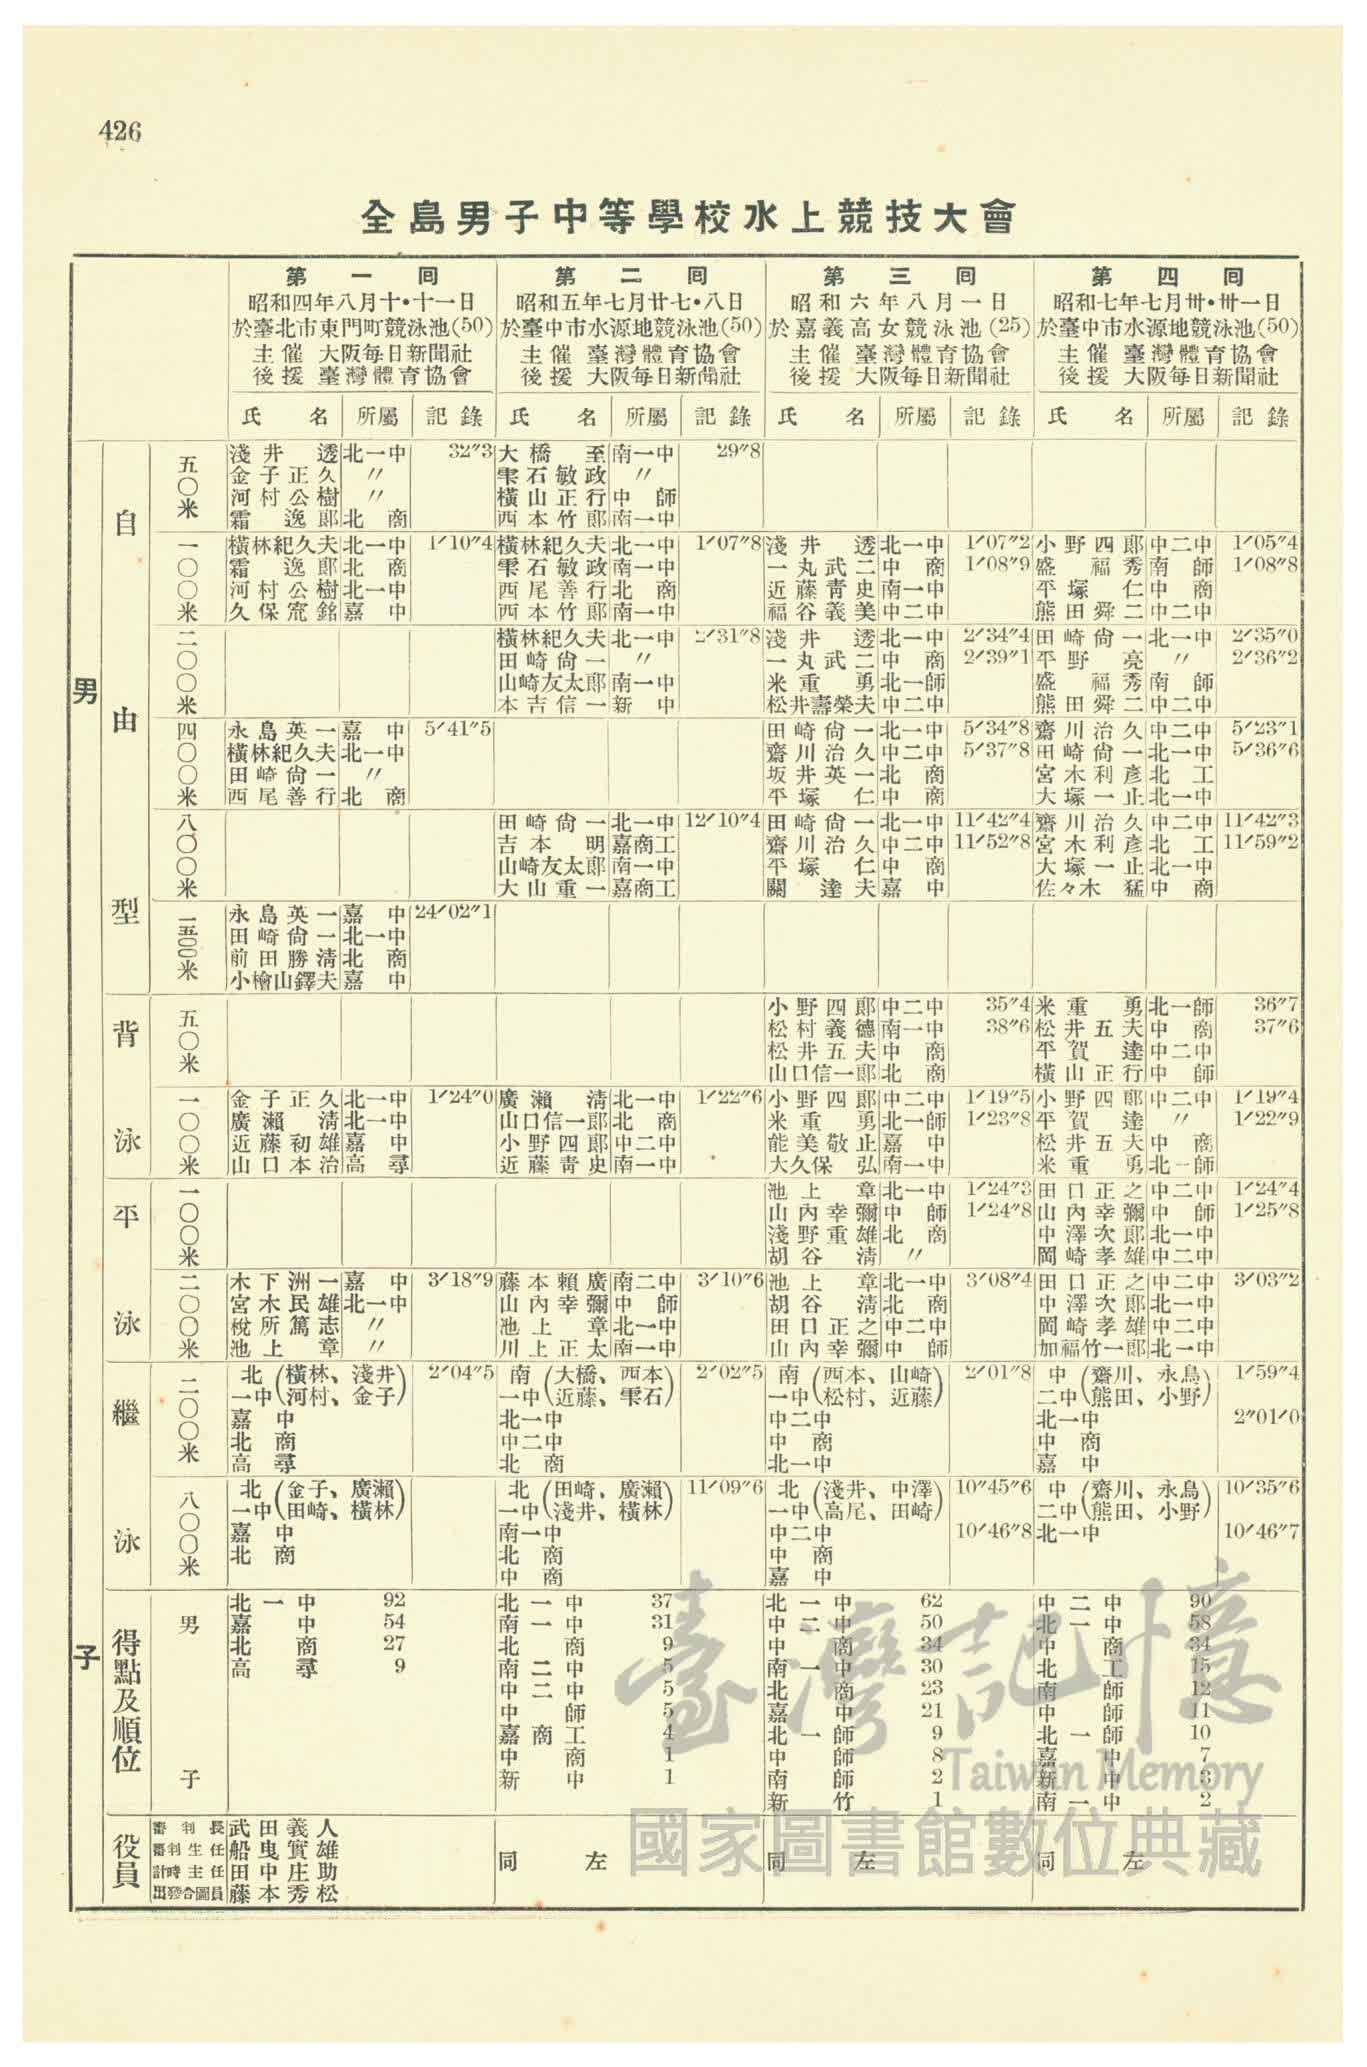 426
全島男子中等學校水上競技大會
第一囘 第二囘 第三囘 第四囘
昭和四年八月十・十一日 昭和五年七月廿七・八日 昭和六年八月一日 昭和七年七月卅・卅一日
於臺北市東門町競泳池(50) 於臺中市水源地競泳池(50) 於嘉義高女競泳池(25) 於臺中市水源地競泳池(50)
主催 大阪每日新聞社 主催 臺灣體育協會 主催 臺灣體育協會 主催 臺灣體育協會
後援 臺灣體育協會 後援 大阪每日新聞社 後援 大阪每日新聞社 後援 大阪每日新聞社
氏名 所屬 記錄 氏名 所屬 記錄 氏名 所屬 記錄 氏名 所屬 記錄
男子
自由型
五〇米
淺井透 北一中 32″3 大橋至 南一中 29″8
金子正久 〃 雫石敏政 〃
河村公樹 〃 橫山正行 中師
霜逸郞 北商 西本竹郞 南一中
一〇〇米
橫林紀久夫 北一中 1′10″4 橫林紀久夫 北一中 1′07″8 淺井透 北一中 1′07″2 小野四郞 中二中 1′05″4
霜逸郞 北商 雫石敏政 南一中 一丸武二 中商 1′08″9 盛福秀 南師 1′08″8
河村公樹 北一中 西尾善行 北商 近藤靑史 南一中 平塚仁 中商
久保窕銘 嘉中 西本竹郞 南一中 福谷義美 中二中 熊田舜二 中二中
二〇〇米
橫林紀久夫 北一中 2′31″8 淺井透 北一中 2′34″4 田崎尙一 北一中 2′35″0
田崎尙一 〃 一丸武二 中商 2′39″1 平野亮 〃 2′36″2
山崎友太郞 南一中 米重勇 北一師 盛福秀 南師
本吉信一 新中 松井壽榮夫 中二中 熊田舜二 中二中
四〇〇米
永島英一 嘉中 5′41″5 田崎尙一 北一中 5′34″8 齋川治久 中二中 5′23″1
橫林紀久夫 北一中 齋川治久 中二中 5′37″8 田崎尙一 北一中 5′36″6
田崎尙一 〃 坂井英一 北商 宮木利彥 北工
西尾善行 北商 平塚仁 中商 大塚一止 北一中
八〇〇米
田崎尙一 北一中 12′10″4 田崎尙一 北一中 11′42″4 齋川治久 中二中 11′42″3
吉本明 嘉商工 齋川治久 中二中 11′52″8 宮木利彥 北工 11′59″2
山崎友太郞 南一中 平塚仁 中商 大塚一止 北一中
大山重一 嘉商工 關達夫 嘉中 佐々木猛 中商
一五〇〇米
永島英一 嘉中 24′02″1
田崎尙一 北一中
前田勝淸 北商
小檜山鐸夫 嘉中
背泳
五〇米
小野四郞 中二中 35″4 米重勇 北一師 36″7
松村義德 南一中 38″6 松井五夫 中商 37″6
松井五夫 中商 平賀達 中二中
山口信一郞 北商 橫山正行 中師
一〇〇米
金子正久 北一中 1′24″0 廣瀨淸 北一中 1′22″6 小野四郞 中二中 1′19″5 小野四郞 中二中 1′19″4
廣瀨淸 北一中 山口信一郞 北商 米重勇 北一師 1′23″8 平賀達 〃 1′22″9
近藤初雄 嘉中 小野四郞 中二中 能美敬止 嘉中 松井五夫 中商
山口本治 高尋 近藤靑史 南一中 大久保弘 南一中 米重勇 北一師
平泳
一〇〇米
池上章 北一中 1′24″3 田口正之 中二中 1′24″4
山內幸彌 中師 1′24″8 山內幸彌 中師 1′25″8
淺野重雄 北商 中澤次郞 北一中
胡谷淸 〃 岡崎孝雄 中二中
二〇〇米
木下洲一 嘉中 3′18″9 藤本賴廣 南二中 3′10″6 池上章 北一中 3′08″4 田口正之 中二中 3′03″2
宮木民雄 北一中 山內幸彌 中師 胡谷淸 北商 中澤次郞 北一中
稅所篤志 〃 池上章 北一中 田口正之 中二中 岡崎孝雄 中二中
池上章 〃 川上正太 南一中 山內幸彌 中師 加福竹一郞 北一中
繼泳
二〇〇米
北一中(橫林、淺井 河村、金子) 2′04″5 南一中(大橋、西本 近藤、雫石) 2′02″5 南一中(西本、山崎 松村、近藤) 2′01″8 中二中(齋川、永島 熊田、小野) 1′59″4
嘉中 北一中 中二中 北一中 2″01′0
北商 中二中 中商 中商
高尋 北商 北一中 嘉中
八〇〇米
北一中(金子、廣瀨 田崎、橫林) 北一中(田崎、廣瀨 淺井、橫林) 11′09″6 北一中(淺井、中澤 高尾、田崎) 10″45″6 中二中(齋川、永島 熊田、小野) 10′35″6
嘉中 南一中 中二中 10′46″8 北一中 10′46″7
北商 北商 中商
中商 嘉中
得點及順位
男子
北一中 92 北一中 37 北一中 62 中二中 90
嘉中 54 南一中 31 中二中 50 北一中 58
北商 27 北商 9 中商 34 中商 34
高尋 9 南二中 5 南一中 30 北工 15
中二中 5 北商 23 南師 12
中師 5 嘉中 21 中師 11
嘉商工 4 北一師 9 北一師 10
中商 1 中師 8 嘉中 7
新中 1 南師 2 新中 3
新竹 1 南一中 2
役員
審判長 武田義人
審判主任 船曳實雄 同左 同左 同左
計時主任 田中庄助
出發合圖員 藤本秀松
臺灣記憶
Taiwan Memory
國家圖書館數位典藏